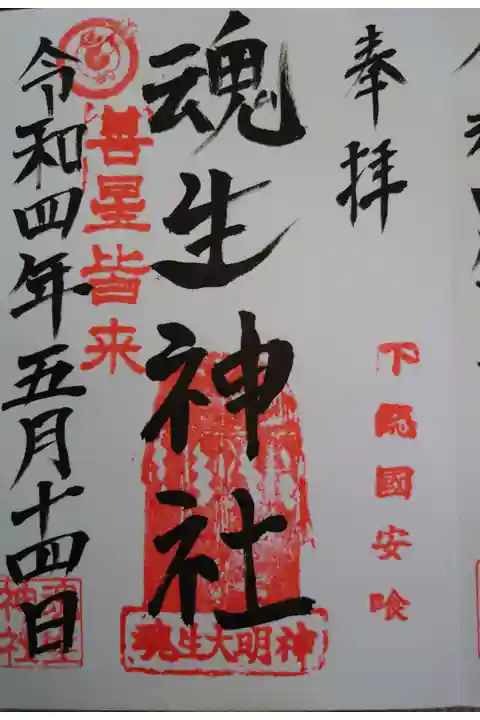 奉拝
下総國安喰
魂生神社
魂生大明神
善星皆来
令和四年五月十四日
魂生
神社